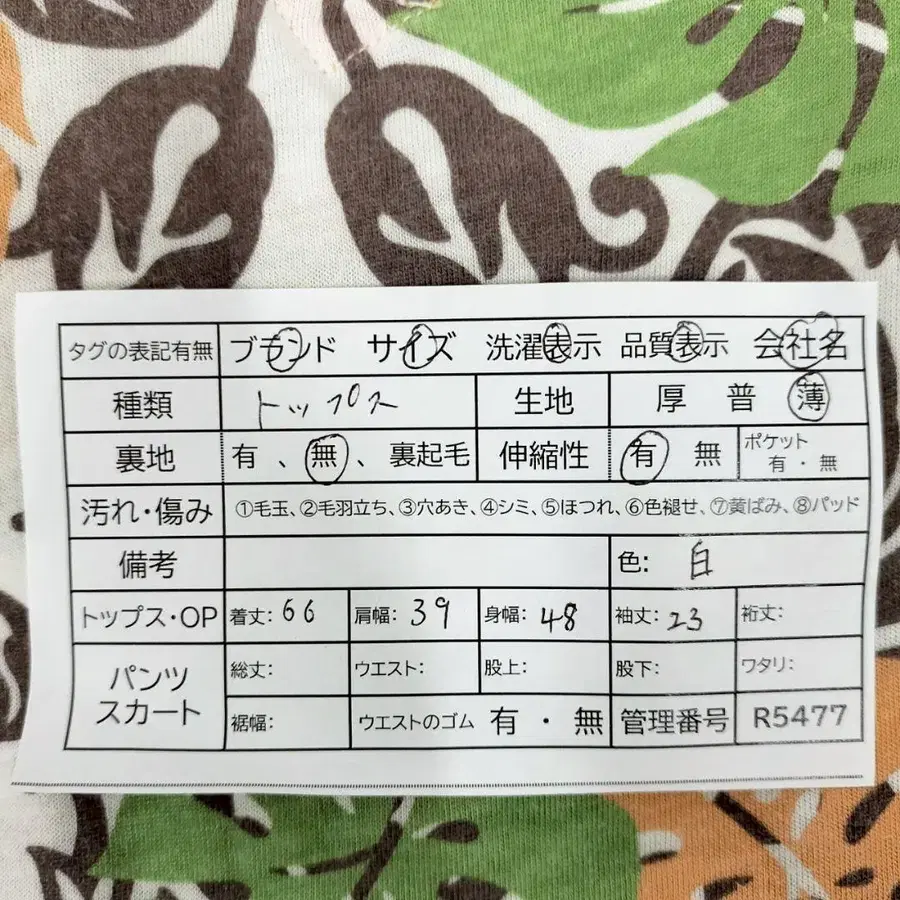 タグの表記有無 ブランド サイズ 洗濯表示 品質表示 会社名
種類 トップス 生地 厚 普 薄
裏地 有 、 無 、 裏起毛 伸縮性 有 無 ポケット 有・無
汚れ・傷み ①毛玉、②毛羽立ち、③穴あき、④シミ、⑤ほつれ、⑥色褪せ、⑦黄ばみ、⑧パッド
備考 色: 白
トップス・OP 着丈: 66 肩幅: 39 身幅: 48 袖丈: 23 裄丈:
パンツ スカート 総丈: ウエスト: 股上: 股下: ワタリ:
裾幅: ウエストのゴム 有 ・ 無 管理番号 R5477